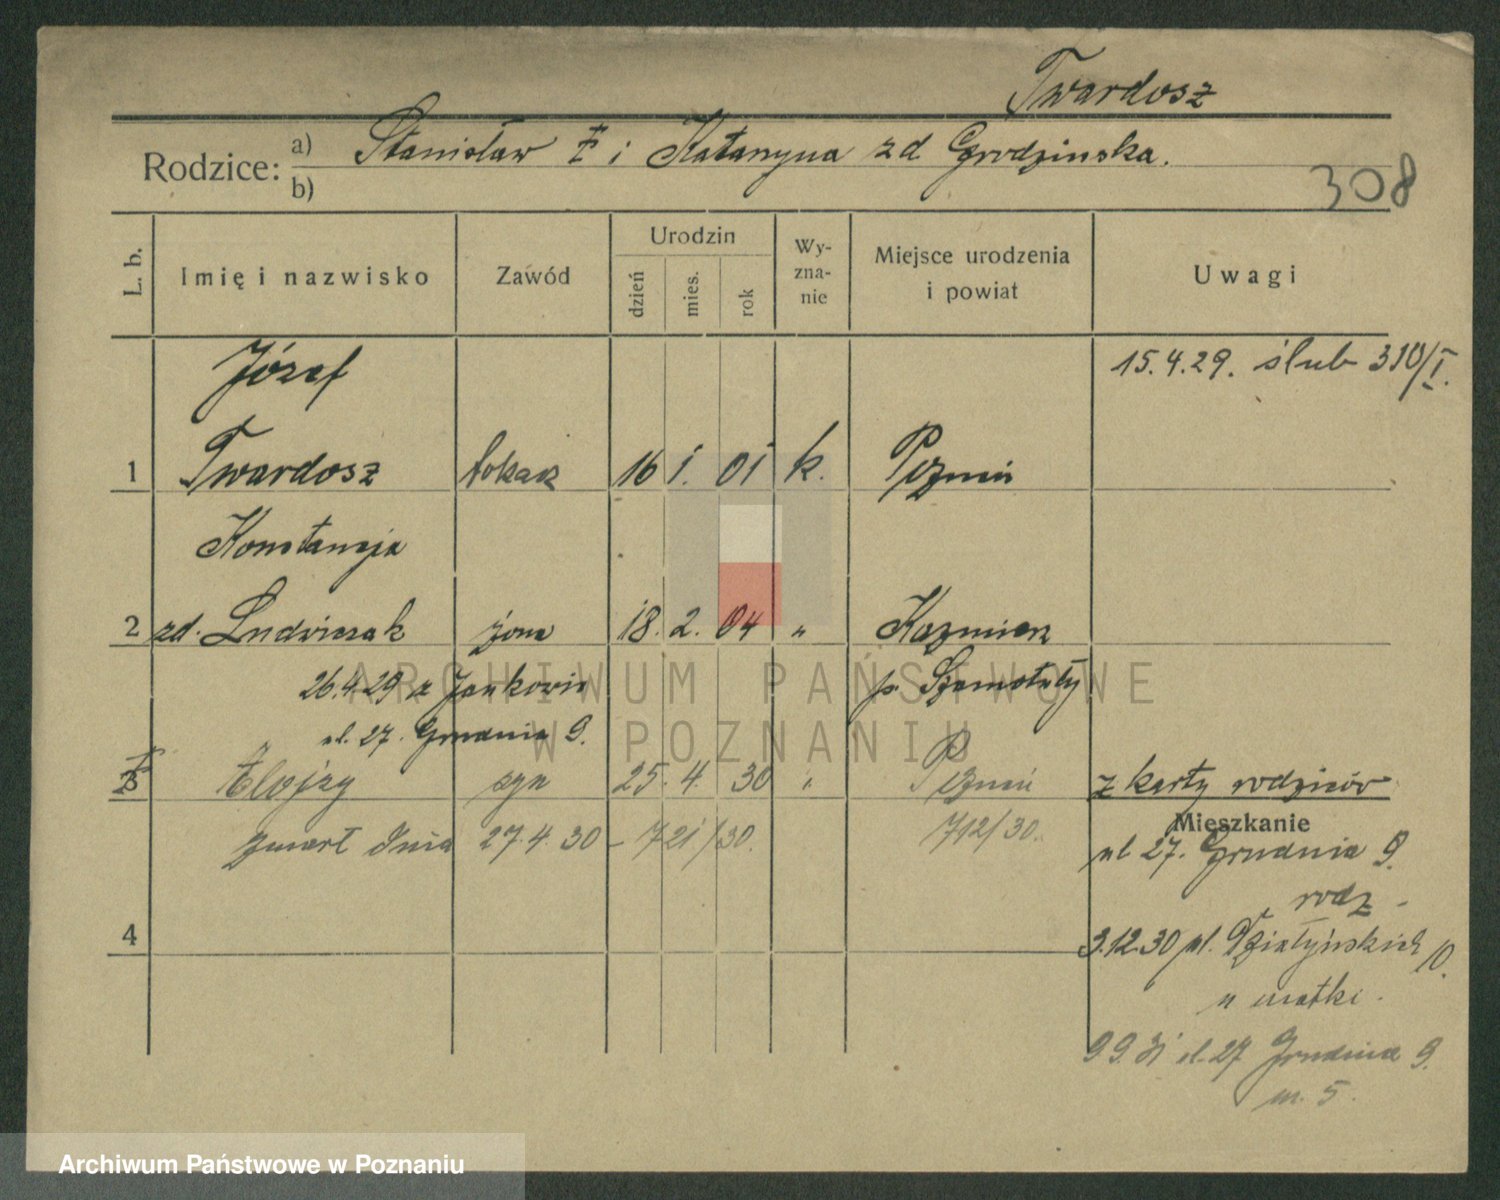 Twardosz
Rodzice: a) Stanisław † i Katarzyna zd Grodzinska.
b)
308
L. b. Imię i nazwisko Zawód Urodzin dzień mies. rok Wy-zna-nie Miejsce urodzenia i powiat Uwagi
Józef 15.4.29. ślub 310/I.
1 Twardosz tokarz 16 1. 01 k. Poznań
Konstancja
2 zd. Ludwiczak żona 18. 2. 04 „ Kazmierz
26.4.29 z Jankowic p. Szamotuły
ul. 27. Grudnia 9.
† 3 Alojzy syn 25. 4. 30 „ Poznań z karty rodziców
Mieszkanie
zmarł dnia 27.4.30 – 721/30. 712/30. ul 27. Grudnia 9.
rodz -
4 3.12.30 ul. Działyńskich 10.
u matki.
9 9. 31 ul. 27 Grudnia 9.
m. 5.
ARCHIWUM PAŃSTWOWE
W POZNANIU
Archiwum Państwowe w Poznaniu